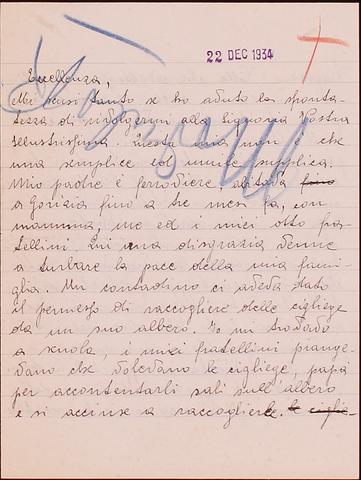 22 DEC 1934
Eccellenza,
Mi scusi tanto se ho avuto la sponta-
tezza di rivolgermi alla Signoria Vostra
Illustrissima. Questa mia non è che
una semplice ed umile supplica.
Mio padre è ferroviere, abitava fino
a Gorizia fino a tre mesi fa, con
mamma, me ed i miei otto fra-
tellini. Lui una disgrazia venne
a turbare la pace della mia fami-
glia. Un contadino ci aveva dato
il permesso di raccogliere delle ciliege
da un suo albero. Io mi trovavo
a scuola, i miei fratellini piange-
vano che volevano le ciliege, papà
per accontentarli salì sull'albero
e si accinse a raccoglierle. le cilie-